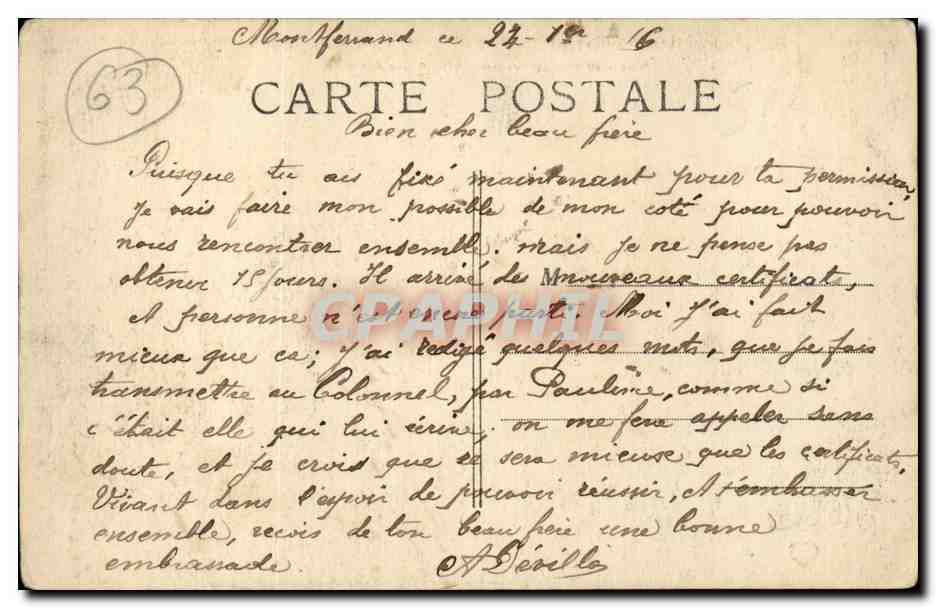 Montferrand ce 24-1er 16
63
CARTE POSTALE
Bien cher beau frère
Puisque tu as fixé maintenant pour ta permission
Je vais faire mon possible de mon coté pour pouvoir
nous rencontrer ensemble. mais je ne pense pas
obtenir 15 jours. Il arrive de nouveaux certificats,
M
et personne n'est encore parti. Moi j'ai fait
CPAPHIL
mieux que ca; j'ai redigé quelques mots, que je fais
transmettre au Colonnel, par Pauline, comme si
c'était elle qui lui écrive; on me fera appeler sans
doute, et je crois que ce sera mieuse que les certificats.
Vivant dans l'espoir de pouvoir réussir, et s'embrasser
ensemble, recois de ton beau frère une bonne
embrassade. A Déville